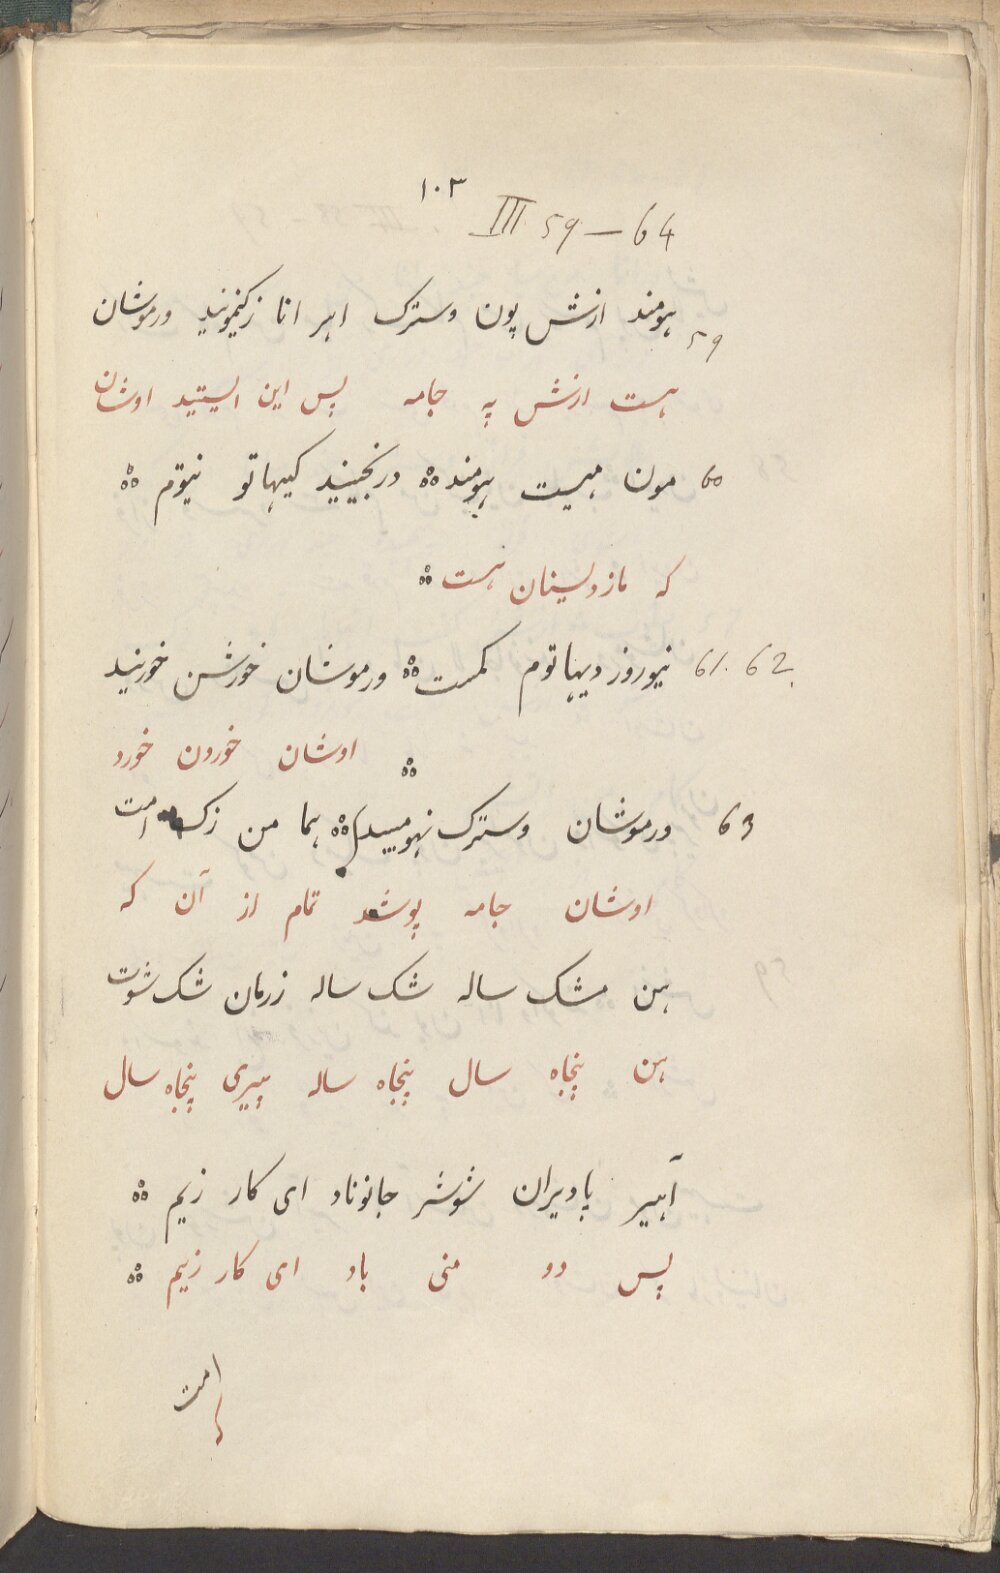 ۱۰۳
III 59 – 64
59 هومند ازش پون وسترک اهر انا زکیمونید ورموشان
هست ازش په جامه پس این ایستید اوشان
60 مون همیست هومند ⁘ درنجینید کیهاتو نیوتم ⁘
که مازدیسنان هست ⁘
61. 62 نیوروز دیهاتوم کمست ⁘ ورموشان خورشن خورنید
اوشان خوردن خورد ⁘
63 ورموشان وسترک ⁘ هما من زک امت
اوشان جامه پوشد تمام از آن که
هن شک ساله شک ساله زرمان شک شوت
هن پنجاه سال پنجاه ساله پیری پنجاه سال
آهیر پادیران شوشر جانوناد ای کار زیم ⁘
پس دو منی باد ای کار زیم ⁘
امت